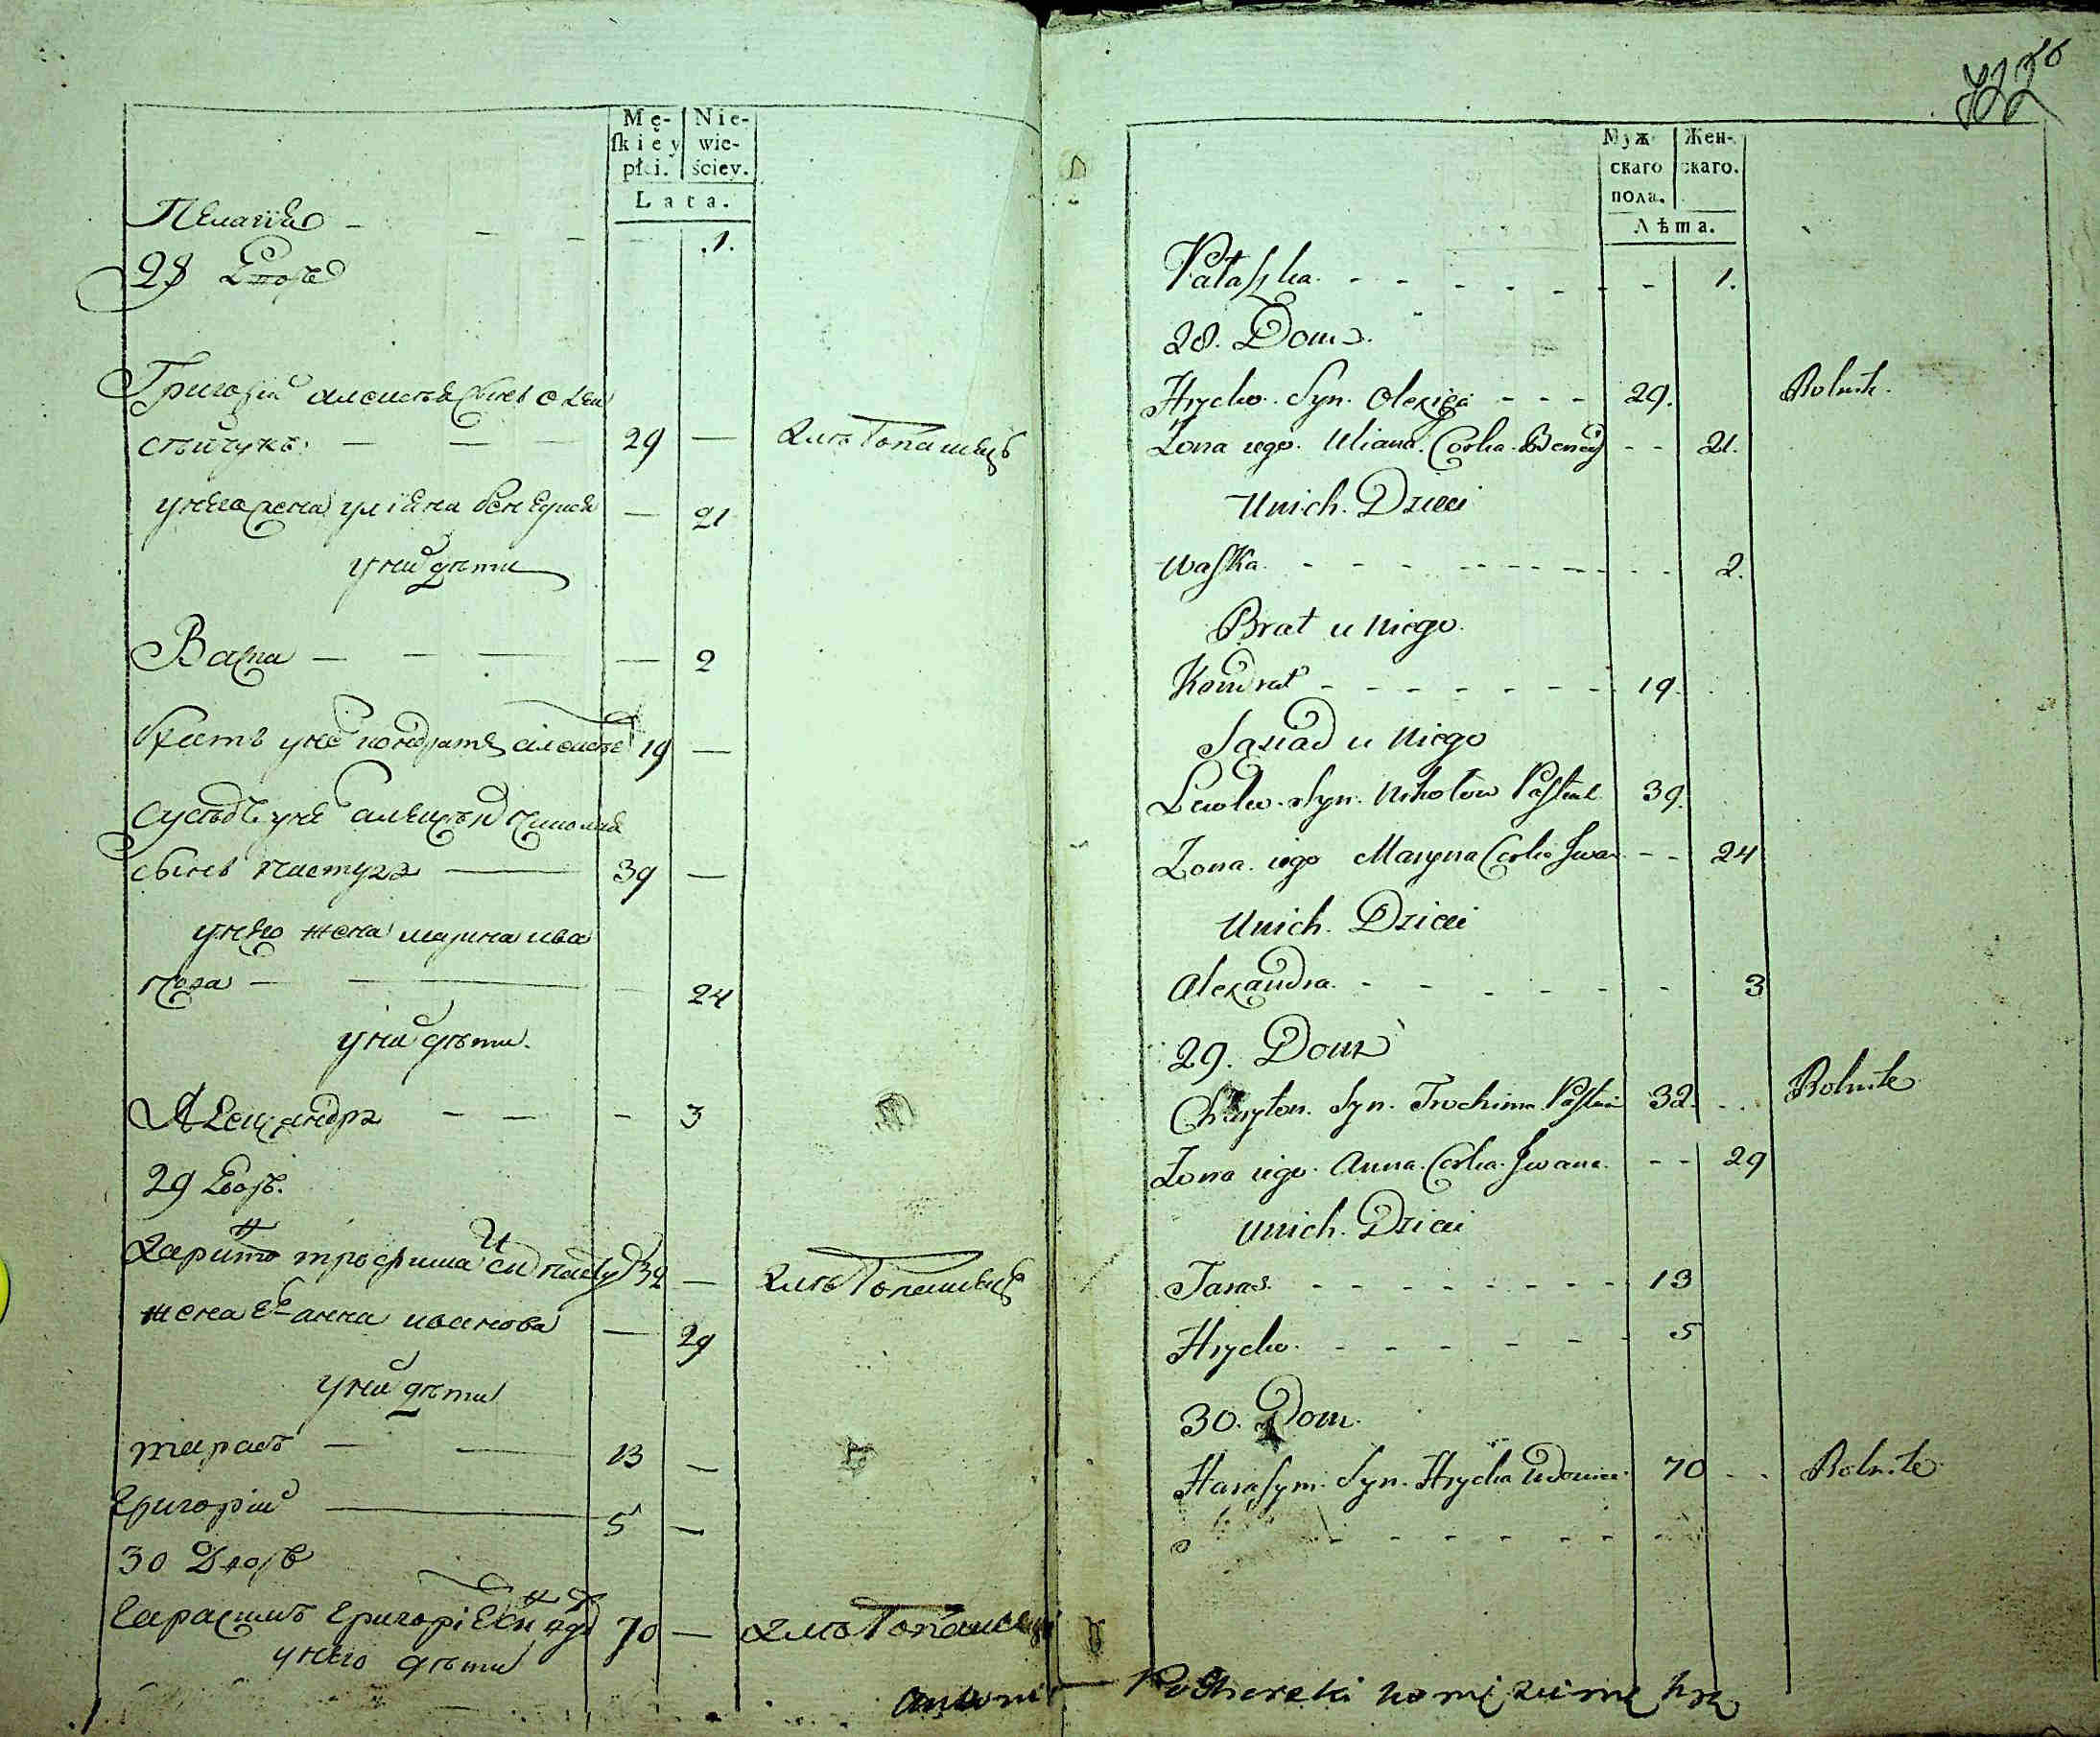 Mę- Nie-
ſkiey wie-
płci. ściey.
Lata.
Пелагия - - - 1.
28 Дворъ
Григорий Алексѣя сынъ Олек
сѣйчукъ - - - 29 — Хлѣбопашецъ
у него жена Улияна Бенедися — 21
у них дѣти
Васка — — — — 2
братъ у него Кондратъ Алексѣе 19 —
сусѣдъ у него Николая
сынъ Пастухъ — 39 —
у него жена Марина Ива
нова — — — 24
у них дѣти
Александра - - - 3
29 Дворъ.
Харитон Трофима сын 32 — Хлѣбопашецъ
жена его Анна Иванова — 29
у них дѣти
Тарасъ — — 13 —
Григорий — 5 —
30 Дворъ
Гарасимъ Григорiе сын 70 — Хлѣбопашецъ
у него дѣти
Antoni
Муж Жен-
скаго скаго.
пола.
Лѣта.
Pałaſzka - - - - - - - 1.
28. Dom.
Hryćko. Syn. Olexieja - - - 29. Rolnik.
Żona iego. Uliana. Corka. Bened - - 21.
U nich. Dzieci
Waſka. - - - - - - - - - 2.
Brat u niego.
Kondrat - - - - - - - 19.
Sąsiad u niego
Lewko. Syn. Mikołow Paſtuch 39.
Żona. iego Maryna Corka Iwan - - 24
U nich. Dzieci
Alexandra. - - - - - - 3
29. Dom
Charyton. Syn. Trochima. Paſtuch 32. . . Rolnik
Żona iego. Anna. Corka. Iwana. - - 29
U nich. Dzieci
Taras. - - - - - - - - 13
Hryćko. - - - - - - 5
30. Dom.
Haraſym. Syn. Hryćka Wdowiec. 70 . . Rolnik